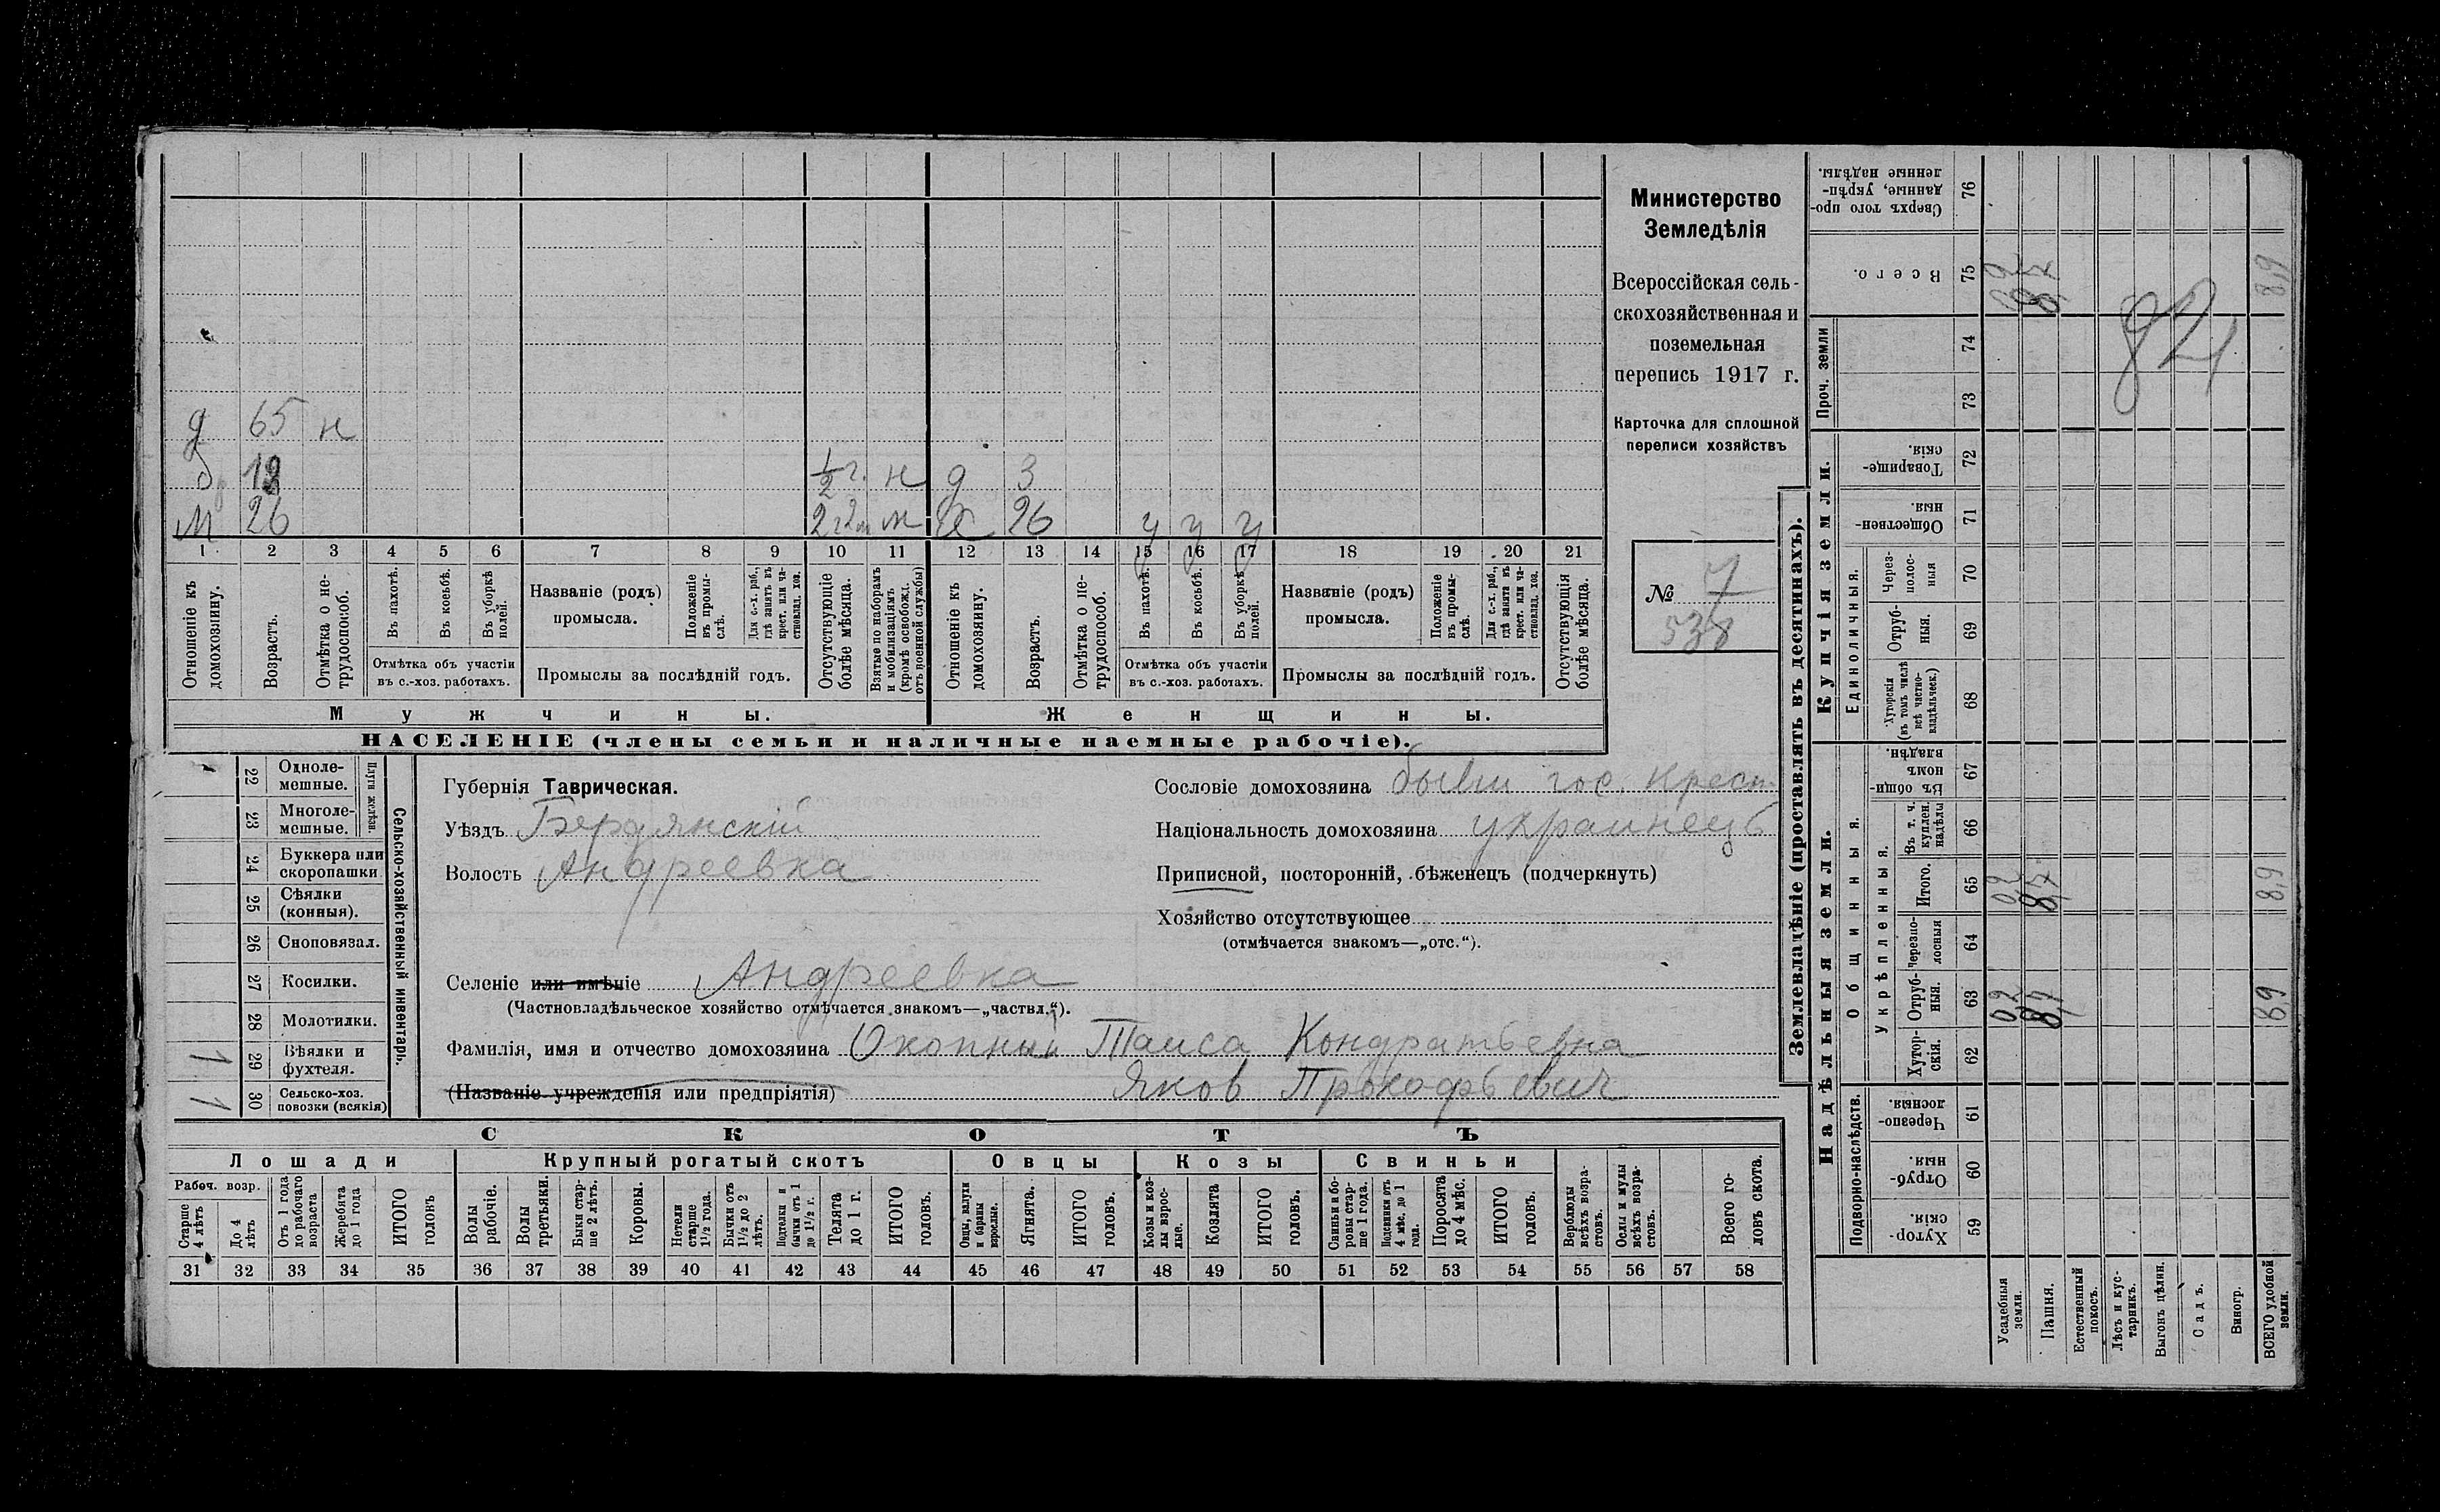 Министерство
Земледѣлія
Всероссійская сель-
скохозяйственная и
поземельная
перепись 1917 г.
Карточка для сплошной
переписи хозяйствъ
№ 7
538
д 65 н
б 1/2 г. н д 3
м 26 н 26 у у у
1 2 3 4 5 6 7 8 9 10 11 12 13 14 15 16 17 18 19 20 21
Отношеніе къ домохозяину.
Возрастъ.
Отмѣтка о не-трудоспособ.
Въ пахотѣ.
Въ косьбѣ.
Въ уборкѣ полей.
Отмѣтка объ участіи
въ с.-хоз. работахъ.
Названіе (родъ)
промысла.
Положеніе въ промы-слѣ.
Для с.-х. раб., гдѣ занятъ въ крест. или ча-стновлад. хоз.
Промыслы за послѣдній годъ.
Отсутствующіе болѣе мѣсяца.
Взятые по наборамъ и мобилизаціямъ (кромѣ освобожд. отъ военной службы)
Отношеніе къ домохозяину.
Возрастъ.
Отмѣтка о не-трудоспособ.
Въ пахотѣ.
Въ косьбѣ.
Въ уборкѣ полей.
Отмѣтка объ участіи
въ с.-хоз. работахъ.
Названіе (родъ)
промысла.
Положеніе въ промы-слѣ.
Для с.-х. раб., гдѣ занята въ крест. или ча-стновлад. хоз.
Промыслы за послѣдній годъ.
Отсутствующія болѣе мѣсяца.
Мужчины.
Женщины.
НАСЕЛЕНІЕ (члены семьи и наличные наемные рабочіе).
Сельско-хозяйственный инвентарь.
Плуги желѣзн.
22 Одноле-мешные.
23 Многоле-мешные.
24 Буккера или скоропашки
25 Сѣялки (конныя).
26 Сноповязал.
27 Косилки.
28 Молотилки.
1 29 Вѣялки и фухтеля.
1 30 Сельско-хоз. повозки (всякія)
Губернія Таврическая.
Уѣздъ Бердянскій
Волость Андреевка
Селеніе или имѣніе Андреевка
(Частновладѣльческое хозяйство отмѣчается знакомъ—„частвл.“).
Фамилія, имя и отчество домохозяина Окопный Таиса Кондратьевна
(Названіе учрежденія или предпріятія) Яков Прокофьевич
Сословіе домохозяина бывш гос. крест.
Національность домохозяина украинецъ
Приписной, посторонній, бѣженецъ (подчеркнуть)
Хозяйство отсутствующее
(отмѣчается знакомъ—„отс.“).
СКОТЪ
Лошади
Крупный рогатый скотъ
Овцы
Козы
Свиньи
Рабоч. возр.
Старше 4 лѣтъ
До 4 лѣтъ
Отъ 1 года до рабочаго возраста
Жеребята до 1 года
ИТОГО головъ
Волы рабочіе.
Волы третьяки.
Быки стар-ше 2 лѣтъ.
Коровы.
Нетели старше 1½ года.
Бычки отъ 1½ до 2 лѣтъ.
Подтелки и бычки отъ 1 до 1½ г.
Телята до 1 г.
ИТОГО головъ.
Овцы, валухи и бараны взрослые.
Ягнята.
ИТОГО головъ.
Козы и коз-лы взрос-лые.
Козлята
ИТОГО головъ.
Свиньи и бо-ровы стар-ше 1 года.
Подсвинки отъ 4 мѣс. до 1 года.
Поросята до 4 мѣс.
ИТОГО головъ.
Верблюды всѣхъ возра-стовъ.
Ослы и мулы всѣхъ возра-стовъ.
Всего го-ловъ скота.
31 32 33 34 35 36 37 38 39 40 41 42 43 44 45 46 47 48 49 50 51 52 53 54 55 56 57 58
Землевладѣніе (проставлять въ десятинахъ).
Надѣльныя земли.
Купчія земли.
Проч. земли
Подворно-наслѣдств.
Общинныя.
Укрѣпленныя.
Единоличныя.
Хутор-скія. 59
Отруб-ныя. 60
Черезпо-лосныя. 61
Хутор-скія. 62
Отруб-ныя. 63 0,2 8,7 8,9
Черезпо-лосныя 64
Итого. 65 0,2 8,7 8,9
Въ т. ч. куплен. надѣлы 66
Въ общи-номъ владѣн. 67
Хуторскія (въ томъ числѣ всѣ частно-владѣльческ.) 68
Отруб-ныя. 69
Через-полос-ныя 70
Обществен-ныя. 71
Товарище-скія. 72
73
74
Всего. 75 0,2 8,7 8,9
Сверхъ того про-данные, укрѣп-ленные надѣлы. 76
Усадебныя земли.
Пашня.
Естественный покосъ.
Лѣсъ и кус-тарникъ.
Выгонъ цѣлин.
Садъ.
Виногр.
ВСЕГО удобной земли.